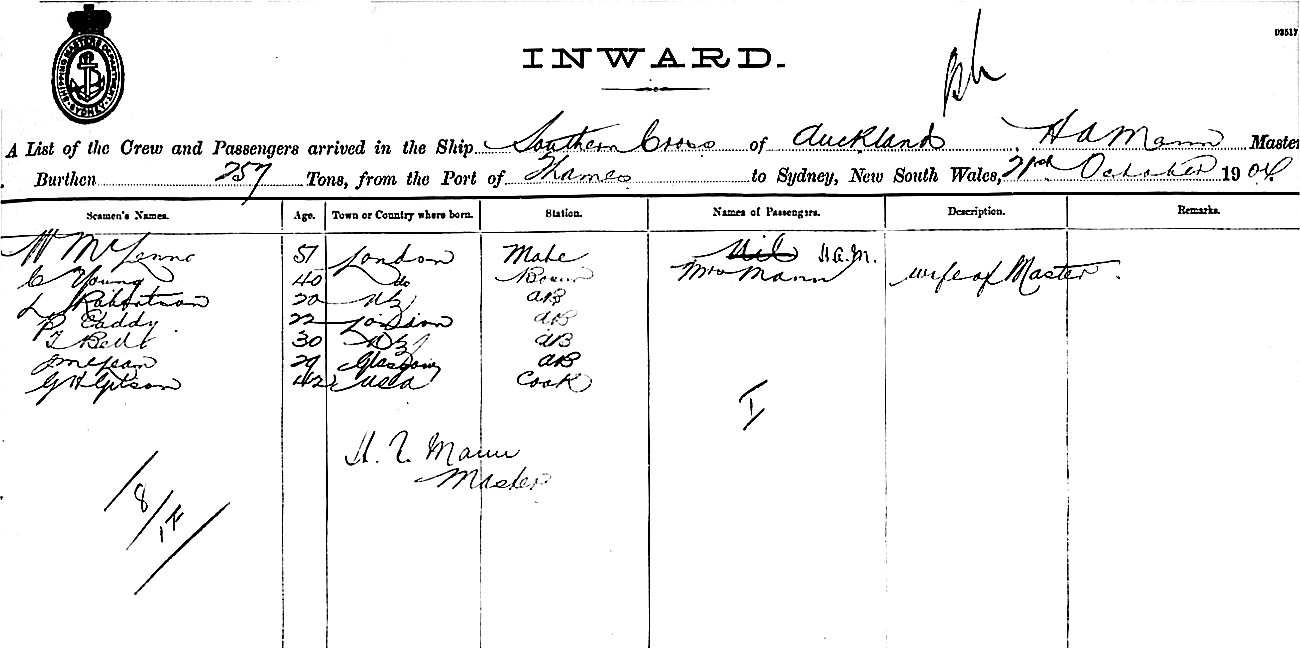 SHIPPING MASTERS DEPARTMENT SYDNEY
D3517
INWARD.
A List of the Crew and Passengers arrived in the Ship Southern Cross of Auckland H A Mann Master
Burthen 257 Tons, from the Port of Thames to Sydney, New South Wales, 21st October 1904
Seamen's Names. Age. Town or Country where born. Station. Names of Passengers. Description. Remarks.
W 51 London Mate Nil H.A.M.
C Young 40 do Mrs Mann wife of Master.
L Robertson 20 NZ AB
P Caddy 22 London AB
T Bell 30 NZ AB
29 Glasgow AB
G H Gibson 42 USA Cook
I
Mann
Master
8/1F